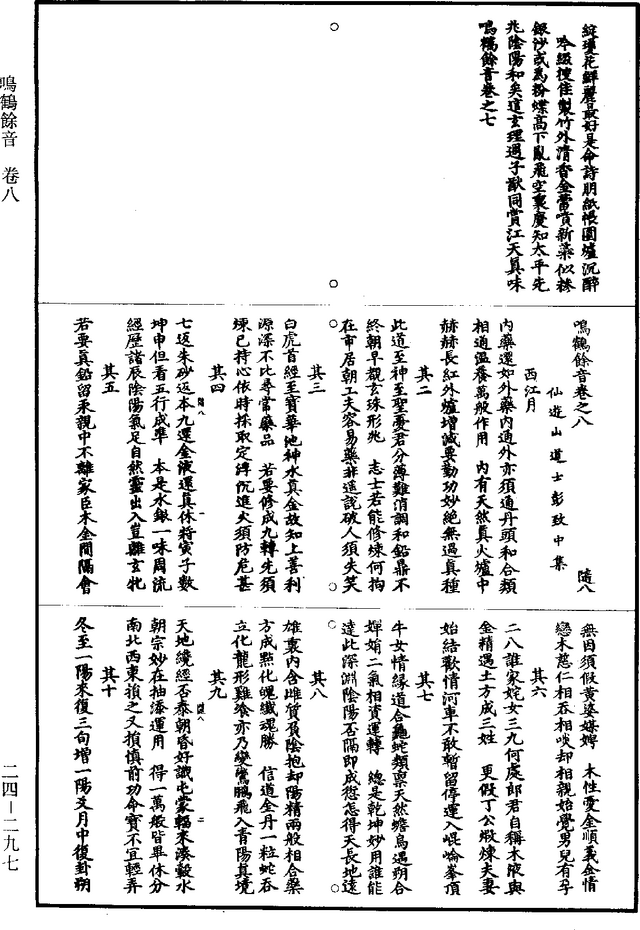 鳴鶴餘音 卷八
綻瓊花鮮麗最好是命詩朋紙帳圍爐沉醉
吟綴梗佳製竹外清香金蕾噴新蘂似糝
銀沙或爲粉蝶高下亂飛空裏慶知太平先
兆陰陽和矣這玄理遇子猷同賞江天真味
鳴鶴餘音卷之七
鳴鶴餘音卷之八 隨八
仙遊山道士彭致中集
西江月
內藥還如外藥內通外亦須通丹頭和合類
相通溫養萬般作用 內有天然真火爐中
赫赫長紅外爐增減要勤功妙絕無過真種
其二
此道至神至聖憂君分薄難消調和鉛鼎不
終朝早覩玄珠形兆 志士若能修煉何拘
在市居朝工夫容易藥非遥說破人須失笑
其三
白虎首經至寶華池神水真金故知上善利
源深不比尋常藥品 若要修成九轉先須
煉己持心依時採取定浮沉進火須防危甚
其四
七返朱砂返本九還金液還真休將寅子數
坤申但看五行成準 本是水銀一味周流
經歷諸辰陰陽氣足自然靈出入豈離玄牝
其五
若要真鉛留汞親中不離家臣木金間隔會
無因須假黃婆媒娉 木性愛金順義金情
戀木慈仁相吞相啖却相親始覺男兒有孕
其六
二八誰家姹女三九何處郎君自稱木液與
金精遇土方成三姓 更假丁公煅煉夫妻
始結歡情河車不敢暫留停運入崐崘峯頂
其七
牛女情緣道合龜蛇類稟天然蟾烏遇朔合
嬋娟二氣相資運轉 總是乾坤妙用誰能
達此深淵陰陽否隔即成愆怎得天長地遠
其八
雄裏內含雌質負陰抱却陽精兩般相合藥
方成點化魄纖魂勝 信道金丹一粒蛇吞
立化龍形雞飡亦乃變鸞鵬飛入青陽真境
其九
天地纔經否泰朝昏好識屯蒙輻來湊轂水
朝宗妙在抽添運用 得一萬般皆畢休分
南北西東損之又損慎前功命寶不宜輕弄
其十
冬至一陽來復三旬增一陽爻月中復卦朔
二四－二九七